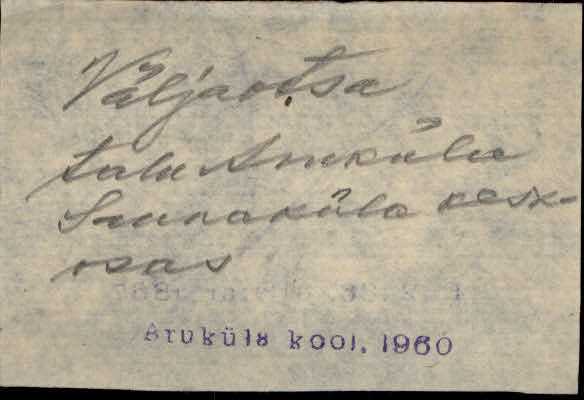 Väljaotsa
talu Aruküla
Saunaküla kesk-
osas
Aruküla kool, 1960